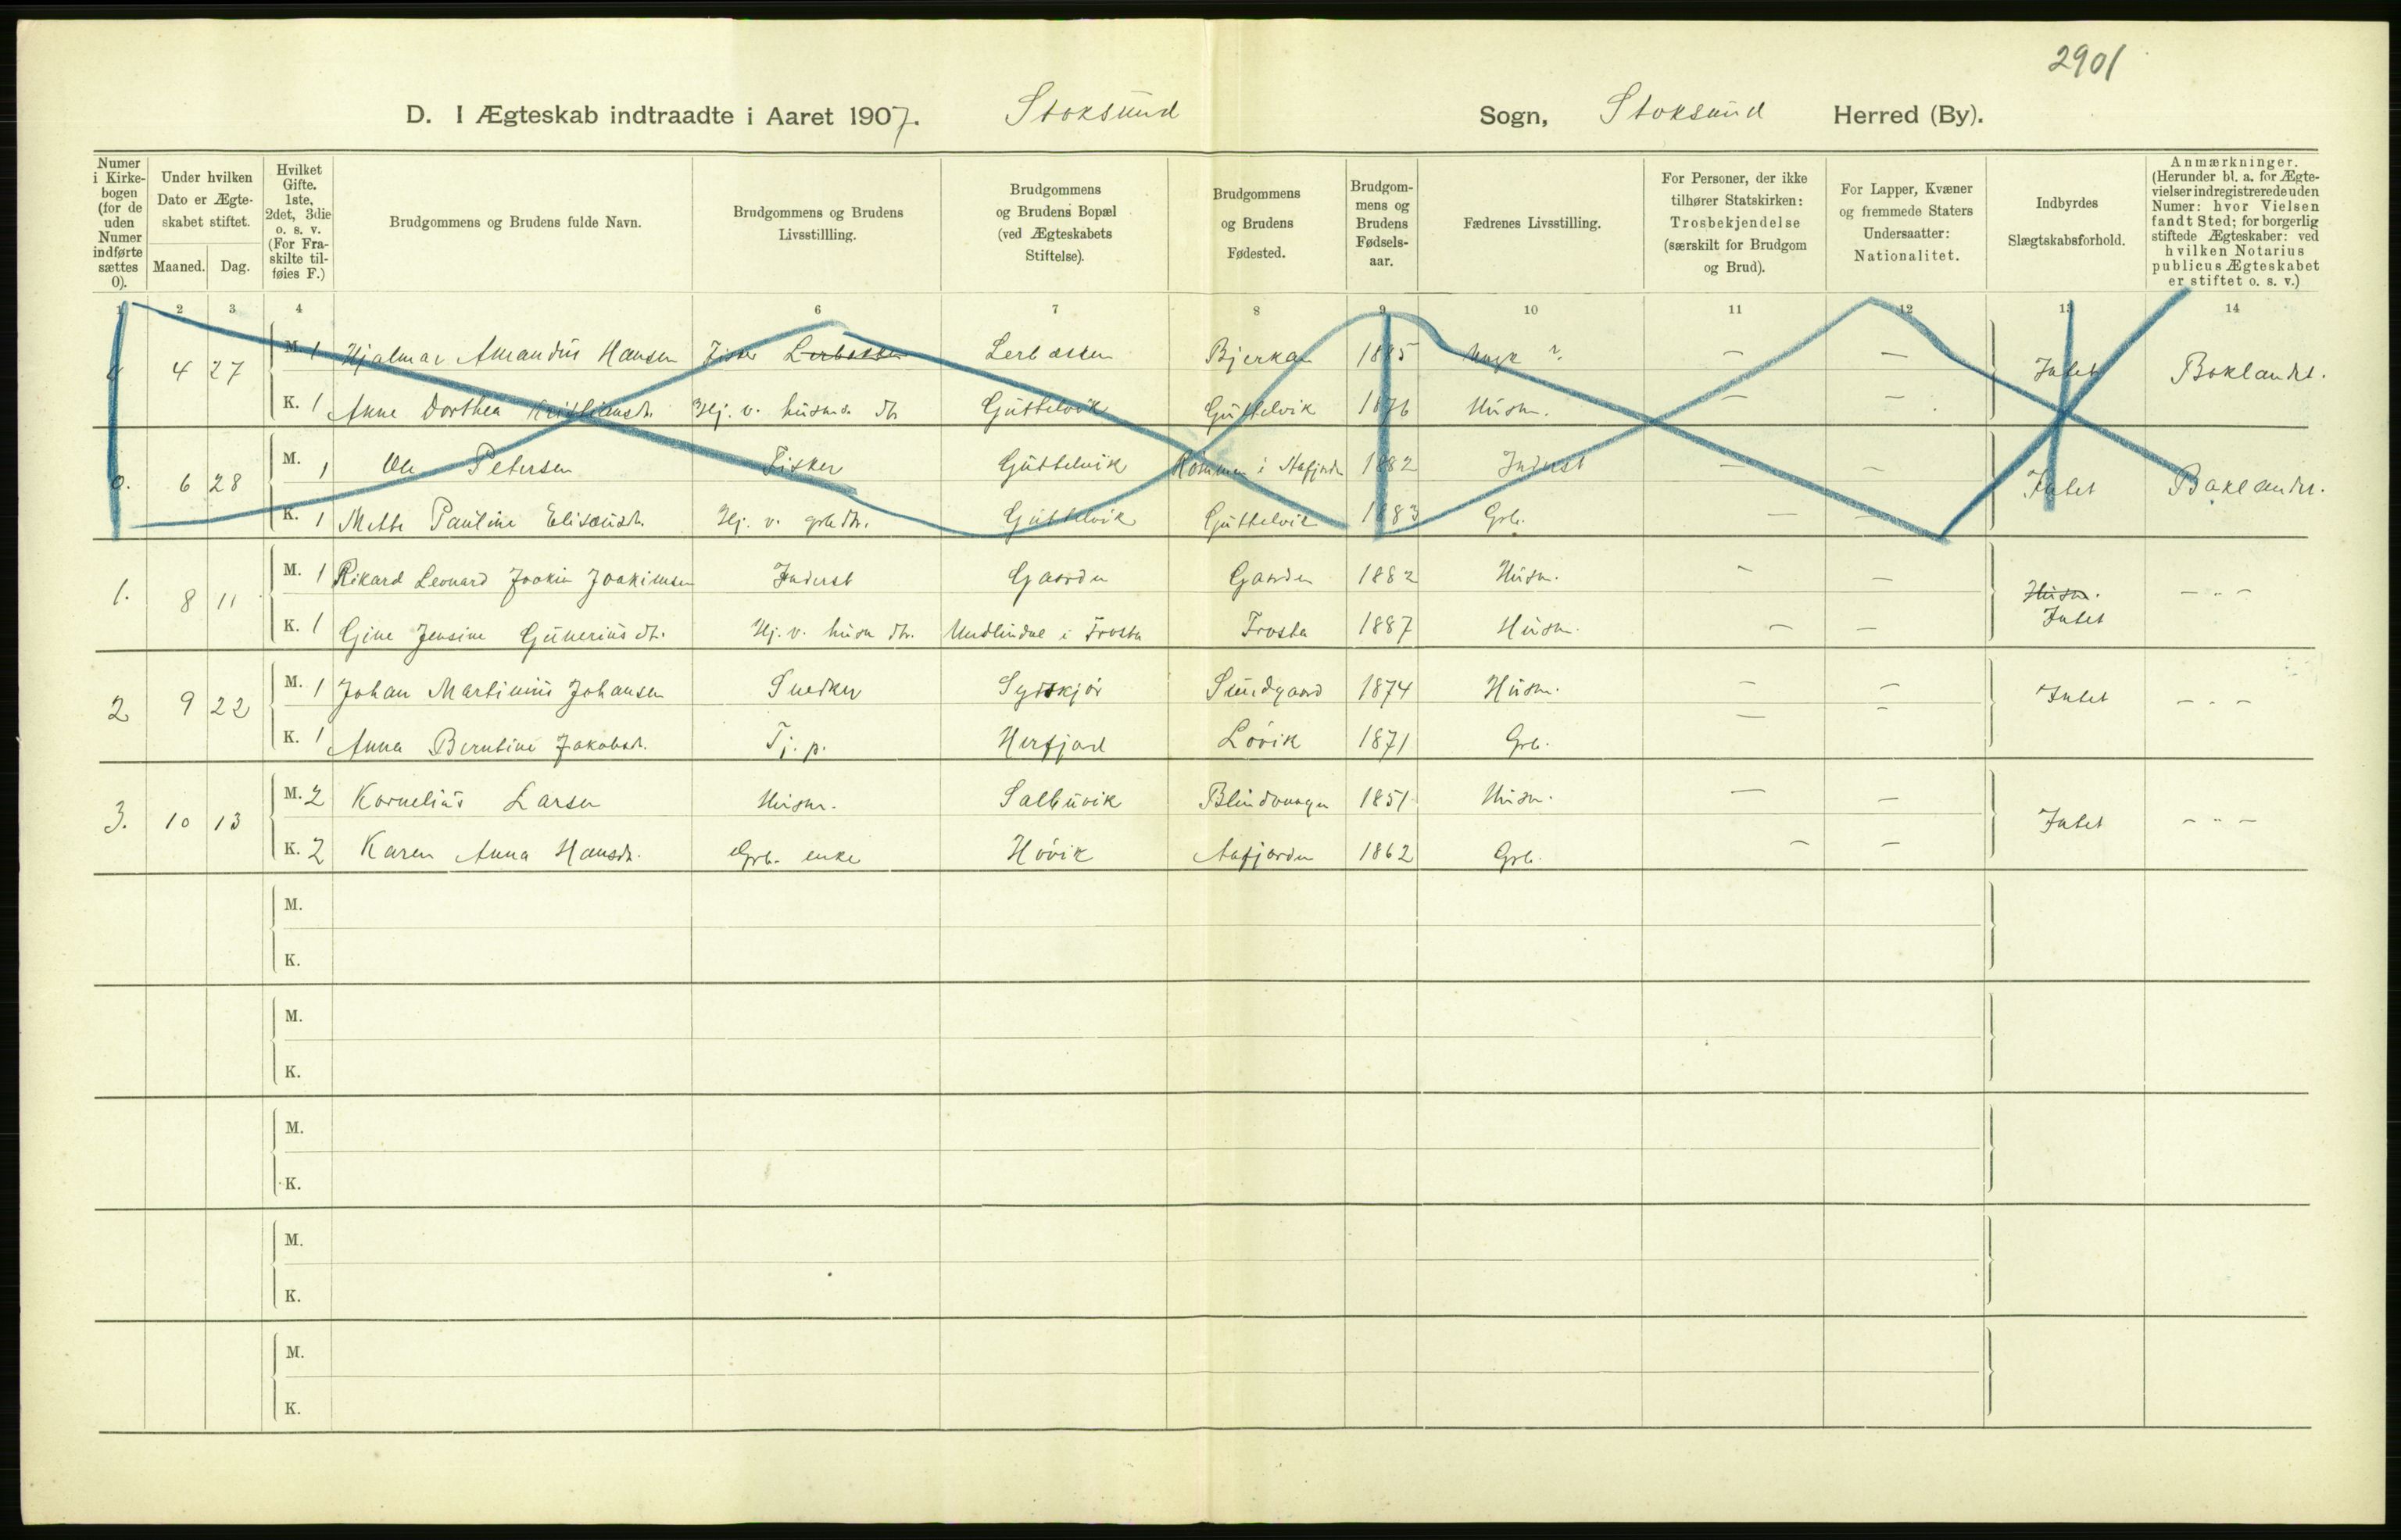 2901
D. I Ægteskab indtraadte i Aaret 1907. Stoksund Sogn, Stoksund Herred (By).
Numer i Kirkebogen (for de uden Numer indførte sættes 0).
Under hvilken Dato er Ægteskabet stiftet.
Maaned. Dag.
Hvilket Gifte. 1ste, 2det, 3die o. s. v. (For Fraskilte tilføies F.)
Brudgommens og Brudens fulde Navn.
Brudgommens og Brudens Livsstillling.
Brudgommens og Brudens Bopæl (ved Ægteskabets Stiftelse).
Brudgommens og Brudens Fødested.
Brudgommens og Brudens Fødselsaar.
Fædrenes Livsstilling.
For Personer, der ikke tilhører Statskirken: Trosbekjendelse (særskilt for Brudgom og Brud).
For Lapper, Kvæner og fremmede Staters Undersaatter: Nationalitet.
Indbyrdes Slægtskabsforhold.
Anmærkninger. (Herunder bl. a. for Ægtevielser indregistrerede uden Numer: hvor Vielsen fandt Sted; for borgerlig stiftede Ægteskaber: ved hvilken Notarius publicus Ægteskabet er stiftet o. s. v.)
1 2 3 4 6 7 8 9 10 11 12 13 14
4 27 M. 1 Hjalmar Amandus Hansen Fisker Lerbassen Lerbassen Bjerkan 1885 Ungk ? — — Intet Boklandet.
K. 1 Anne Dorthea Kristiansdt. Hj. v. husm. dt. Guttelvik Guttelvik 1876 Husm. — —
0. 6 28 M. 1 Ole Petersen Fisker Guttelvik i Aafjorden 1882 Inderst — — Intet Baklandet.
K. 1 Mette Pauline Elisæusdt. Hj. v. grb. dt. Guttelvik Guttelvik 1883 Grb. — —
1. 8 11 M. 1 Rikard Leonard Joakim Joakimsen Inderst Gaarden Gaarden 1882 Husm. — — Husm. — " —
K. 1 Gine Jensine Guneriusdt. Hj. v. husm dt. i Frosta Frosta 1887 Husm. — — Intet
2 9 22 M. 1 Johan Martinius Johansen Snedker Sydskjør Sundgaard 1874 Husm. — — Intet — " —
K. 1 Anna Berntine Jakobsdt. Tj. p. Herfjord Løvik 1871 Grb. — —
3. 10 13 M. 2 Kornelius Larsen Husm. Salbuvik Blindvaagen 1851 Husm. — — Intet — " —
K. 2 Karen Anna Hansdt. Grb. enke Høvik Aafjorden 1862 Grb. — —
M.
K.
M.
K.
M.
K.
M.
K.
M.
K.